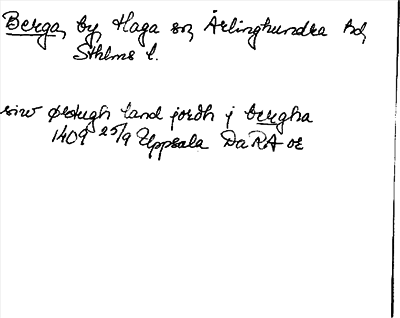 Berga, by, Haga sn, Ärlinghundra hd,
Sthlms l.
siw øretugh land jordh j bergha
1409 25/9 Uppsala DaRA or